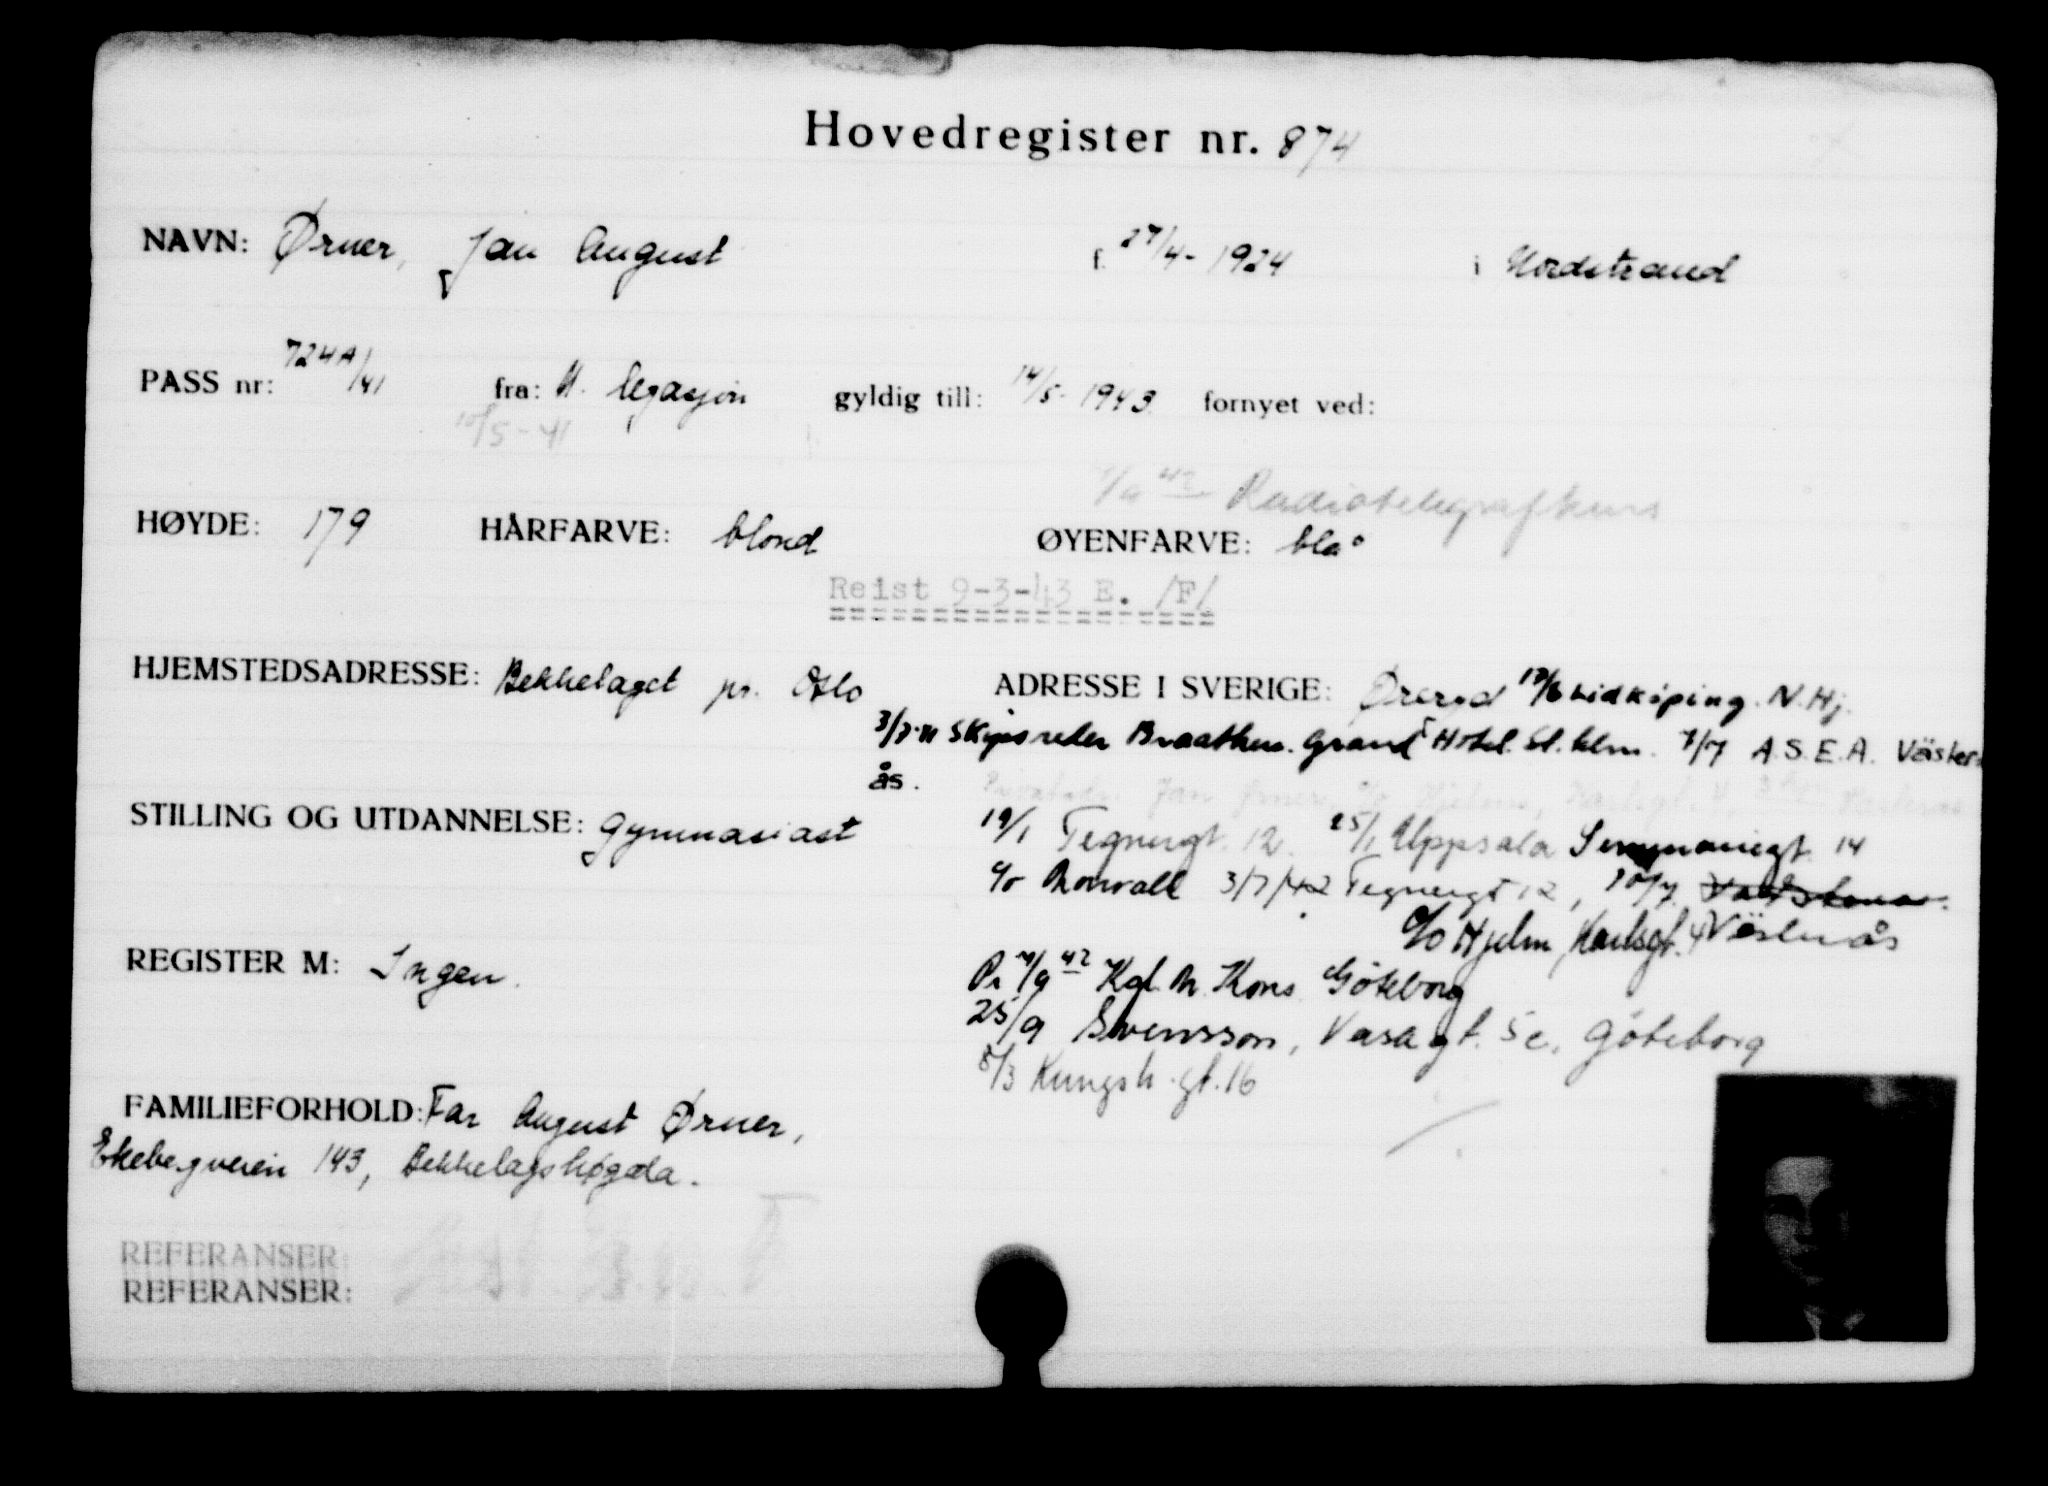 Hovedregister nr. 874
NAVN: Ørner, Jan August f. 27/4-1924 i Nordstrand
PASS nr: 724A/41 fra: N. legasjon gyldig till: 14/5-1943 fornyet ved:
10/5-41
1/9 42 Radiotelegrafkurs
HØYDE: 179 HÅRFARVE: blond ØYENFARVE: blå
Reist 9-3-43 E. /F/
HJEMSTEDSADRESSE: Bekkelaget pr. Oslo ADRESSE I SVERIGE: Øreryd Lidköping. N. Hj.
3/7-41 Skipsreder Braathen. Grand Hotel. St.hlm. 7/7 A.S.E.A. Väster-
ås.
Jan Ørner, c/o Hjelm,
STILLING OG UTDANNELSE: Gymnasiast 19/1 Tegnergt. 12. 25/1 Uppsala 14
c/o 3/7/42 Tegnergt 12,
c/o Hjelm Karlsgt. 4 Västerås
REGISTER M: Ingen. 42 Kgl. N. Kons. Göteborg
25/9 Svensson, Vasagt. 5c, Göteborg
8/3 Kungsh.gt. 16
FAMILIEFORHOLD: Far August Ørner,
Ekebergveien 143, Bekkelagshøgda.
REFERANSER:
REFERANSER: